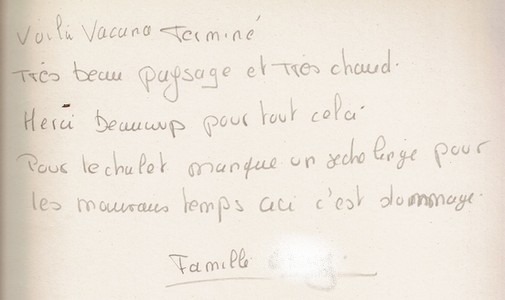 Voilà Vacans Terminé
Très beau paysage et très chaud.
Merci beaucoup pour tout celà
Pour le chalet manque un seche linge pour
les mauvais temps aci c'est dommage.
Famille